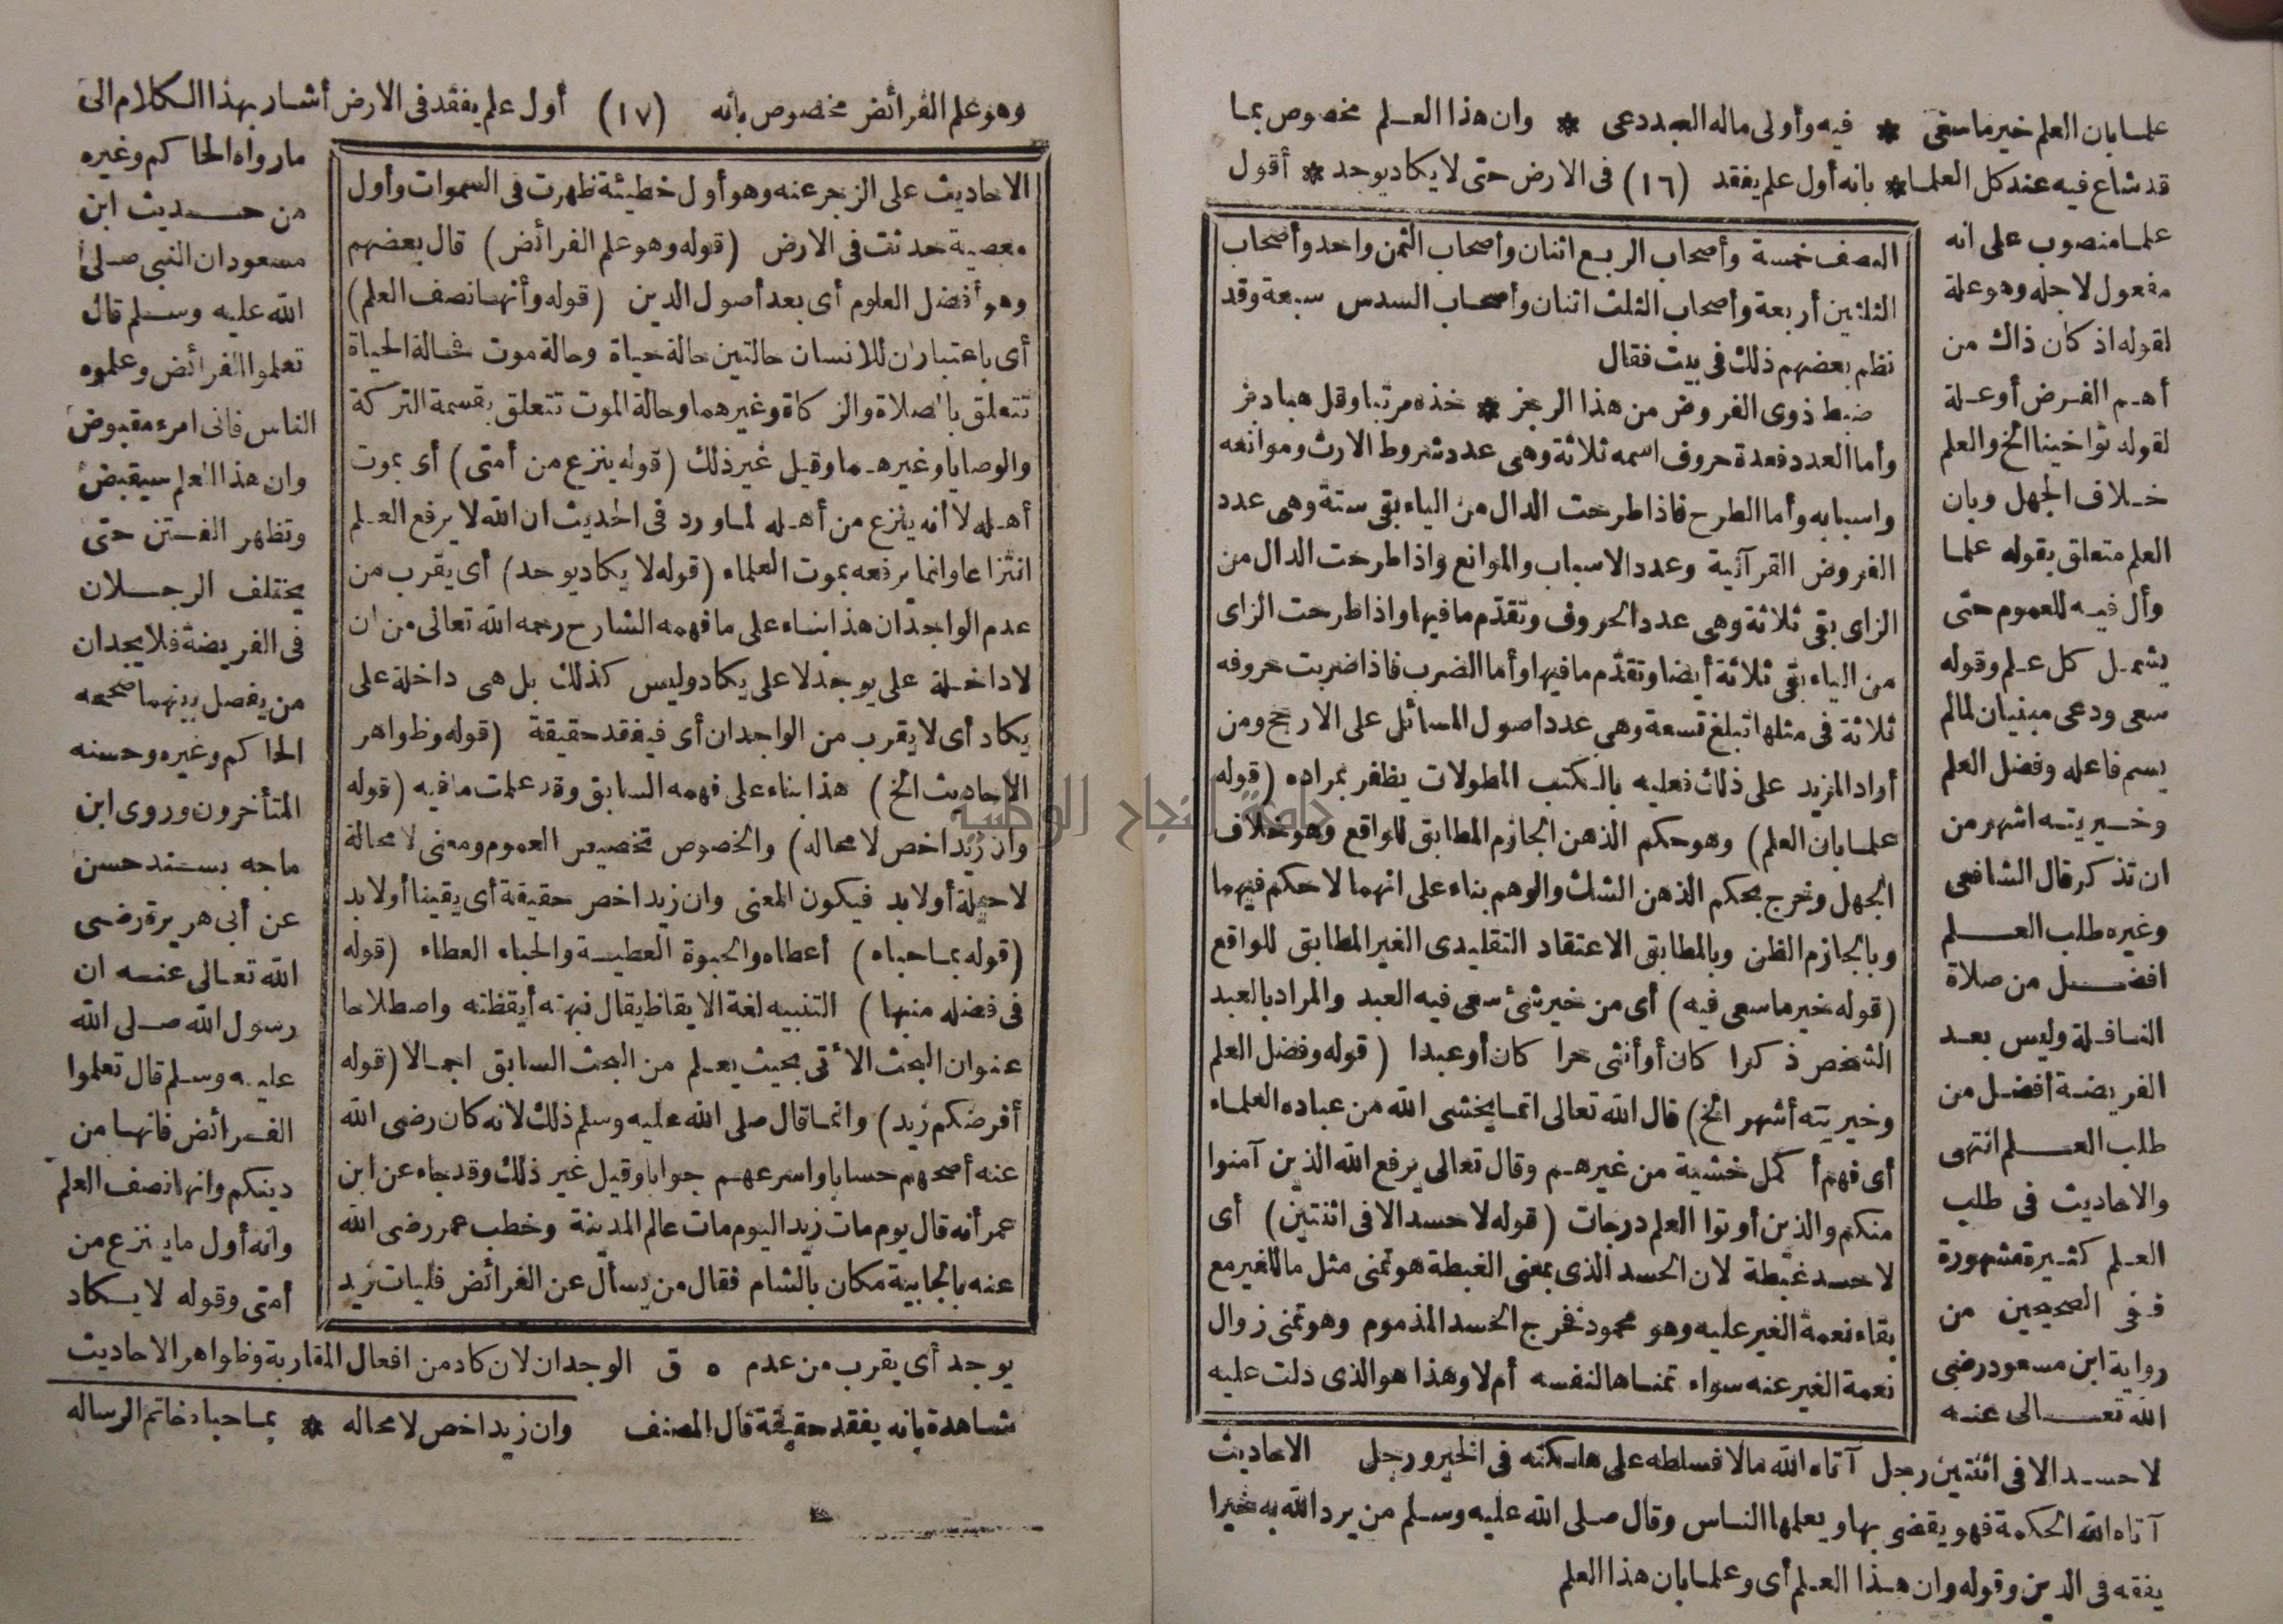 علما بان العلم خير ما سعى * فيه وأولى ماله العبد دعى * وان هذا العلم مخصوص بما
قد شاع فيه عند كل العلما * بانه أول علم يفقد (١٦) فى الارض حتى لا يكاد يوجد * أقول
علما منصوب على انه
مفعول لاجله وهو علة
لقوله اذ كان ذاك من
أهم الفرض أو علة
لقوله توخينا الخ والعلم
خلاف الجهل وبان
العلم متعلق بقوله علما
وأل فيه للعموم حتى
يشمل كل علم وقوله
سعى ودعى مبنيان لمالم
يسم فاعله وفضل العلم
وخيريته اشهر من
ان تذكر قال الشافعى
وغيره طلب العلم
افضل من صلاة
النافلة وليس بعد
الفريضة أفضل من
طلب العلم انتهى
والاحاديث فى طلب
العلم كثيرة مشهورة
ففى الصحيحين من
رواية ابن مسعود رضى
الله تعالى عنه
لا حسد الا فى اثنتين رجل آتاه الله مالا فسلطه على هلكته فى الخير ورجل الاحاديث
آتاه الله الحكمة فهو يقضى بها ويعلمها الناس وقال صلى الله عليه وسلم من يرد الله به خيرا
يفقه فى الدين وقوله وان هذا العلم أى وعلما بان هذا العلم
النصف خمسة وأصحاب الربع اثنان وأصحاب الثمن واحد وأصحاب
الثلثين أربعة وأصحاب الثلث اثنان وأصحاب السدس سبعة وقد
نظم بعضهم ذلك فى بيت فقال
ضبط ذوى الفروض من هذا الرجز * خذه مرتبا وقل هبادبز
وأما العدد فعدة حروف اسمه ثلاثة وهى عدد شروط الارث وموانعه
واسبابه وأما الطرح فاذا طرحت الدال من الياء بقى ستة وهى عدد
الفروض القرآنية وعدد الاسباب والموانع واذا طرحت الدال من
الزاى بقى ثلاثة وهى عدد الحروف وتقدّم ما فيها واذا طرحت الزاى
من الياء بقى ثلاثة أيضا وتقدّم ما فيها وأما الضرب فاذا ضربت حروفه
ثلاثة فى مثلها تبلغ تسعة وهى عدد اصول المسائل على الارجح ومن
أراد المزيد على ذلك فعليه بالكتب المطولات يظفر بمراده (قوله
علما بان العلم) وهو حكم الذهن الجازم المطابق للواقع وهو خلاف
الجهل وخرج بحكم الذهن الشك والوهم بناء على انهما لا حكم فيهما
وبالجازم الظن وبالمطابق الاعتقاد التقليدى الغير المطابق للواقع
(قوله خير ما سعى فيه) أى من خير شئ سعى فيه العبد والمراد بالعبد
الشخص ذكرا كان أو أنثى حرا كان أو عبدا (قوله وفضل العلم
وخيريته أشهر الخ) قال الله تعالى انما يخشى الله من عباده العلماء
أى فهم أكمل خشية من غيرهم وقال تعالى يرفع الله الذين آمنوا
منكم والذين أوتوا العلم درجات (قوله لا حسد الا فى اثنتين) أى
لا حسد غبطة لان الحسد الذى بمعنى الغبطة هو تمنى مثل ما للغير مع
بقاء نعمة الغير عليه وهو محمود فخرج الحسد المذموم وهو تمنى زوال
نعمة الغير عنه سواء تمناها لنفسه أم لا وهذا هو الذى دلت عليه
وهو علم الفرائض مخصوص بانه (١٧) أول علم يفقد فى الارض أشار بهذا الكلام الى
الاحاديث على الزجر عنه وهو أول خطيئة ظهرت فى السموات وأول
معصية حدثت فى الارض (قوله وهو علم الفرائض) قال بعضهم
وهو أفضل العلوم أى بعد أصول الدين (قوله وأنها نصف العلم)
أى باعتبار ان للانسان حالتين حالة حياة وحالة موت فحالة الحياة
تتعلق بالصلاة والزكاة وغيرهما وحالة الموت تتعلق بقسمة التركة
والوصايا وغيرهما وقيل غير ذلك (قوله ينزع من أمتى) أى بموت
أهله لا أنه ينزع من أهله لما ورد فى الحديث ان الله لا يرفع العلم
انتزاعا وانما يرفعه بموت العلماء (قوله لا يكاد يوجد) أى يقرب من
عدم الواجدان هذا بناء على ما فهمه الشارح رحمه الله تعالى من ان
لا داخلة على يوجد لا على يكاد وليس كذلك بل هى داخلة على
يكاد أى لا يقرب من الواجدان أى فيفقد حقيقة (قوله وظواهر
الاحاديث الخ) هذا بناء على فهمه السابق وقد علمت ما فيه (قوله
وان زيدا خص لا محاله) والخصوص تخصيص العموم ومعنى لا محالة
لا حيلة أو لا بد فيكون المعنى وان زيدا خص حقيقة أى يقينا أو لا بد
(قوله بما حباه) أعطاه والحبوة العطية والحباء العطاء (قوله
فى فضله منبها) التنبيه لغة الايقاظ يقال نبهته أيقظته واصطلاحا
عنوان البحث الآتى بحيث يعلم من البحث السابق اجمالا (قوله
أفرضكم زيد) وانما قال صلى الله عليه وسلم ذلك لانه كان رضى الله
عنه أصحهم حسابا واسرعهم جوابا وقيل غير ذلك وقد جاء عن ابن
عمر أنه قال يوم مات زيد اليوم مات عالم المدينة وخطب عمر رضى الله
عنه بالجابية مكان بالشام فقال من يسأل عن الفرائض فليات زيد
ما رواه الحاكم وغيره
من حديث ابن
مسعود ان النبى صلى
الله عليه وسلم قال
تعلموا الفرائض وعلموه
الناس فانى امرء مقبوض
وان هذا العلم سيقبض
وتظهر الفتن حتى
يختلف الرجلان
فى الفريضة فلا يجدان
من يفصل بينهما صححه
الحاكم وغيره وحسنه
المتأخرون وروى ابن
ماجه بسند حسن
عن أبى هريرة رضى
الله تعالى عنه ان
رسول الله صلى الله
عليه وسلم قال تعلموا
الفرائض فانها من
دينكم وانها نصف العلم
وانه أول ما ينزع من
أمتى وقوله لا يكاد
يوجد أى يقرب من عدم ٥ ق الوجدان لان كاد من افعال المقاربة وظواهر الاحاديث
شاهدة بانه يفقد حقيقة قال المصنف وان زيدا خص لا محاله * بما حباه خاتم الرساله
جامعة النجاح الوطنية